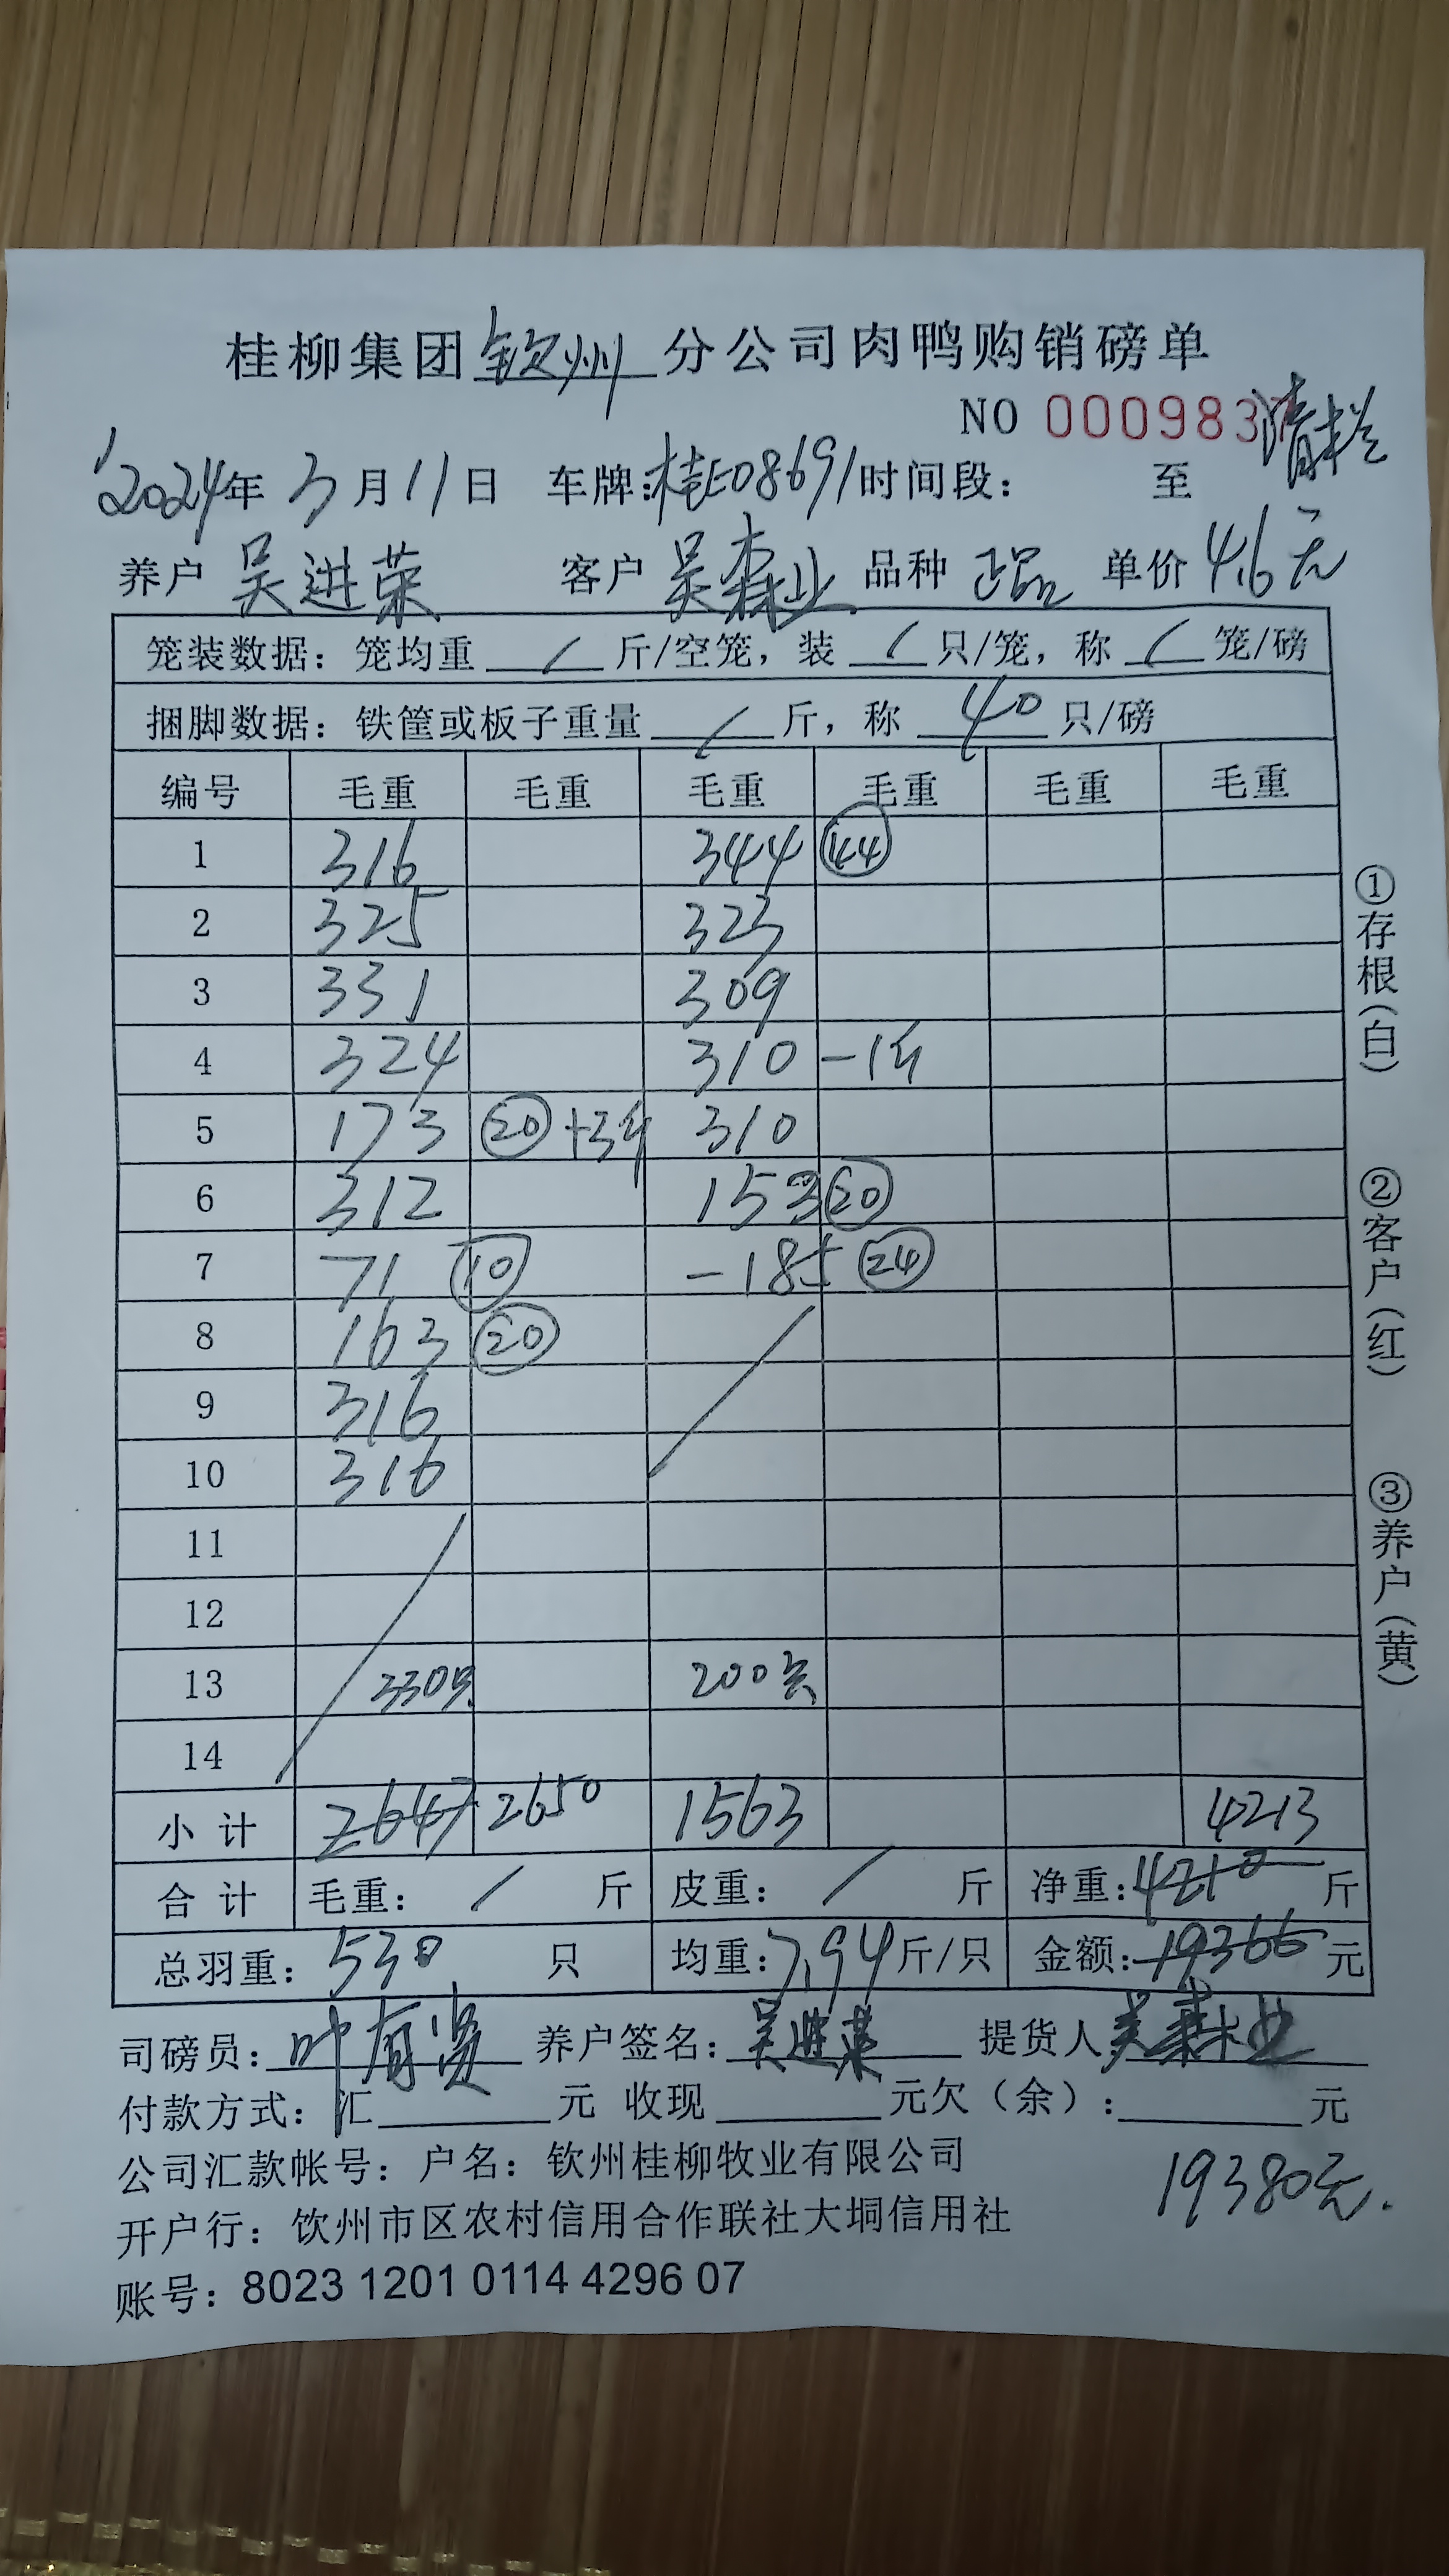 桂柳集团钦州分公司肉鸭购销磅单
NO 000983 清栏
2024年3月11日 车牌:桂E08691时间段: 至
养户 吴进荣 客户 吴森业 品种 正品 单价 4.6元
笼装数据: 笼均重 / 斤/空笼, 装 / 只/笼, 称 / 笼/磅
捆脚数据: 铁筐或板子重量 / 斤, 称 40 只/磅
编号 毛重 毛重 毛重 毛重 毛重 毛重
1 316 344 44
2 325 323
3 331 309
4 324 310 -1斤
5 173 20 +3斤 310
6 312 153 20
7 71 10 -185 24
8 163 20
9 316
10 316
11
12
13 330只 200只
14
小计 2647 2650 1563 4213
合计 毛重: / 斤 皮重: / 斤 净重:4210 斤
总羽重: 530 只 均重:7.94斤/只 金额:19366元
司磅员: 叶有贤 养户签名: 吴进荣 提货人 吴森业
付款方式: 汇 元 收现 元欠(余): 元
公司汇款帐号: 户名: 钦州桂柳牧业有限公司
19380元.
开户行: 钦州市区农村信用合作联社大垌信用社
账号: 8023 1201 0114 4296 07
①存根(白)
②客户(红)
③养户(黄)